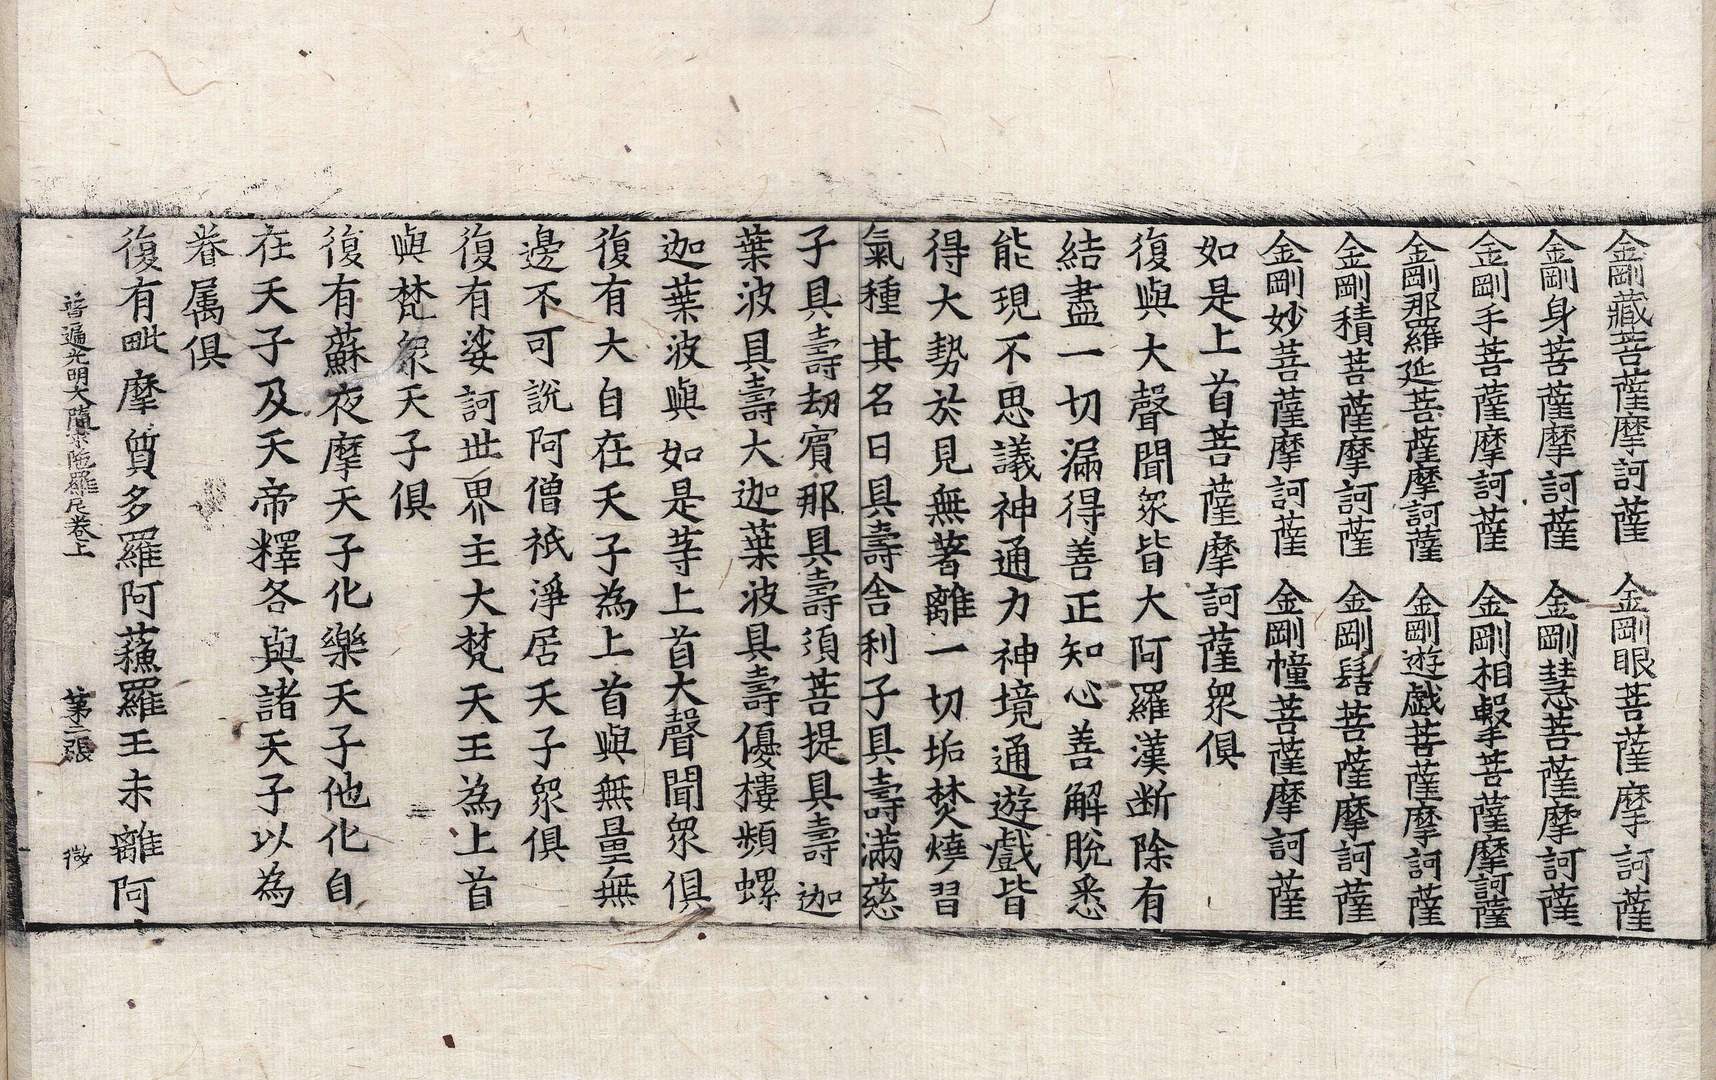 金剛藏菩薩摩訶薩　金剛眼菩薩摩訶薩
金剛身菩薩摩訶薩　金剛慧菩薩摩訶薩
金剛手菩薩摩訶薩　金剛相擊菩薩摩訶薩
金剛那羅延菩薩摩訶薩　金剛遊戲菩薩摩訶薩
金剛積菩薩摩訶薩　金剛髻菩薩摩訶薩
金剛妙菩薩摩訶薩　金剛幢菩薩摩訶薩
如是上首菩薩摩訶薩衆俱
復與大聲聞衆皆大阿羅漢断除有
結盡一切漏得善正知心善解脫悉
能現不思議神通力神境通遊戲皆
得大勢於見無著離一切垢焚燒習
氣種其名曰具壽舍利子具壽滿慈
子具壽劫賔那具壽須菩提具壽迦
葉波具壽大迦葉波具壽優樓頻螺
迦葉波與如是等上首大聲聞衆俱
復有大自在天子為上首與無量無
邊不可說阿僧祇淨居天子衆俱
復有娑訶世界主大梵天王為上首
與梵衆天子俱
復有蘇夜摩天子化樂天子他化自
在天子及天帝釋各與諸天子以為
眷属俱
復有毗摩質多羅阿蘓羅王未離阿
普遍光明大隨求陁羅尼卷上　第二張　微